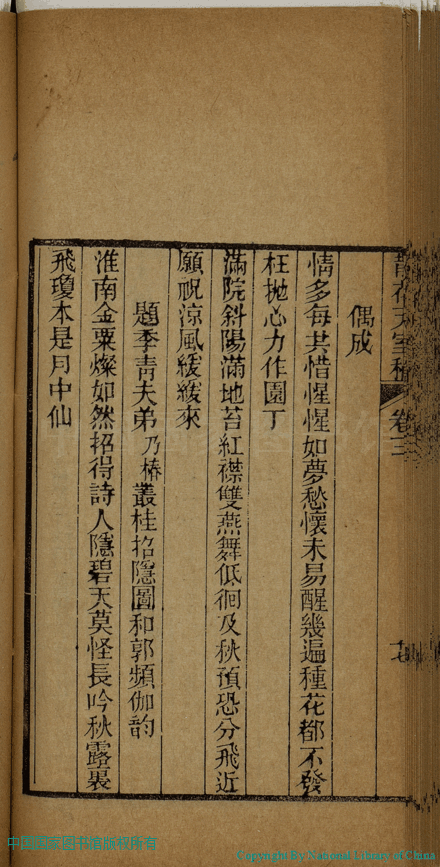 卷三
十七
偶成
情多每共惜惺惺如夢愁懷未易醒幾遍種花都不發
枉抛心力作園丁
滿院斜陽滿地苔紅襟雙燕舞低徊及秋預恐分飛近
願祝涼風緩緩來
題季青夫弟乃椿叢桂招隱圖和郭頻伽韵
淮南金粟燦如然招得詩人隱碧天莫怪長吟秋露裛
飛瓊本是月中仙
中國國家图书馆版权所有
Copyright By National Library of China